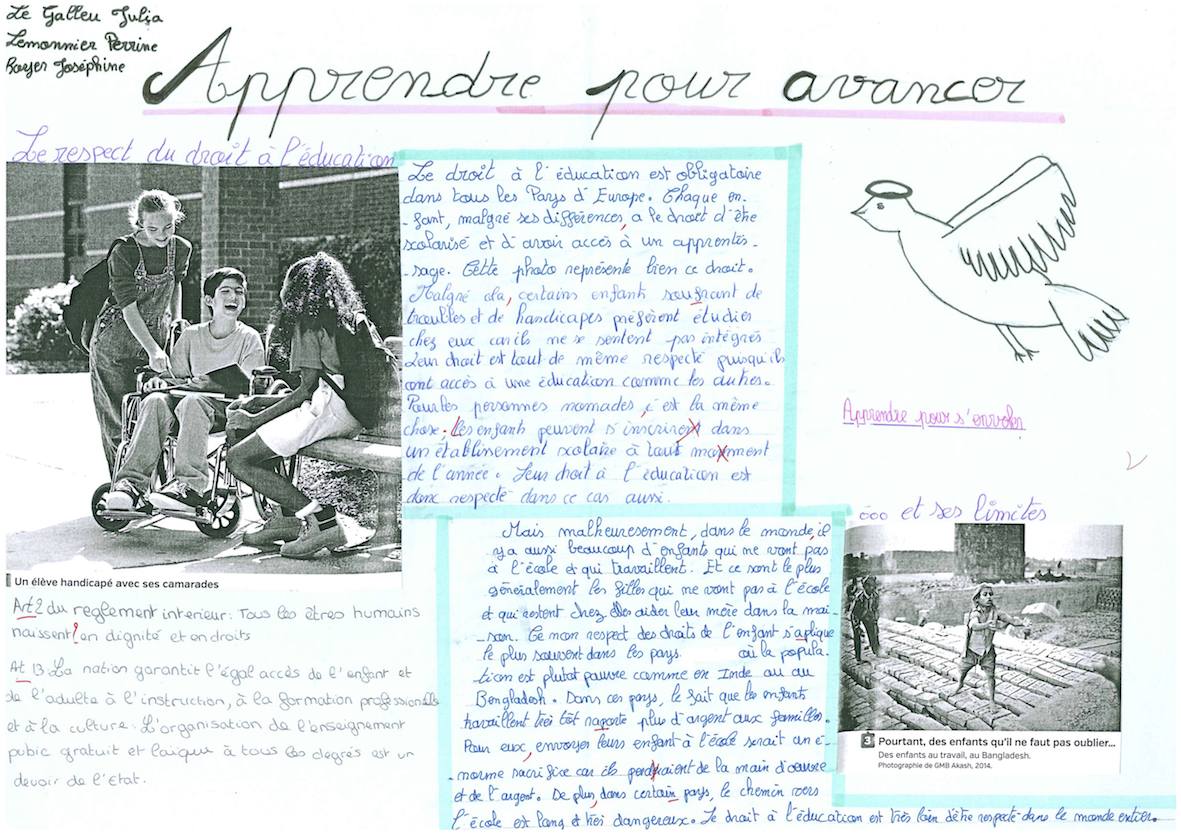 Le Galleu Julia
Lemonnier Perrine
Royer Joséphine
Apprendre pour avancer
Le respect du droit à l'éducation
Le droit à l'éducation est obligatoire
dans tous les Pays d'Europe. Chaque en-
-fant, malgré ses différences, a le droit d'être
scolarisé et d'avoir accès à un apprentis-
-sage. Cette photo représente bien ce droit.
Malgré cela, certains enfants soufrant de
troubles et de handicapes préfèrent étudier
chez eux car ils ne se sentent pas intégrés
Leur droit est tout de même respecté puisqu'ils
ont accès à une éducation comme les autres.
Pour les personnes nomades, c'est la même
chose. Les enfants peuvent s'inscrirent dans
un établissement scolaire à tout moment
de l'année. Leur droit à l'éducation est
donc respecté dans ce cas aussi.
Un élève handicapé avec ses camarades
Art 2 du reglement interieur: Tous les êtres humains
naissent! en dignité et en droits
At 13 La nation garantit l'égal accès de l'enfant et
de l'adulte à l'instruction, à la formation professionelle
et à la culture. L'organisation de l'enseignement
pubic gratuit et laïque à tous les degrés est un
devoir de l'Etat.
Apprendre pour s'envoler
ooo et ses limites
Mais malheuresement, dans le monde, il
y a aussi beaucoup d'enfants qui ne vont pas
à l'école et qui travaillent. Et ce sont le plus
généralement les filles qui ne vont pas à l'école
et qui restent chez elles aider leur mère dans la mai-
-son. Ce non respect des droits de l'enfant s'aplique
le plus souvent dans les pays où la popula-
tion est plutot pauvre comme en Inde ou au
Bengladesh. Dans ces pays, le fait que les enfants
travaillent très tôt raporte plus d'argent aux familles.
Pour eux, envoyer leurs enfant à l'école serait un é-
-norme sacrifice car ils perdraient de la main d'oeuvre
et de l'argent. De plus, dans certain pays, le chemin vers
l'école est long et très dangereux. Le droit à l'éducation est très loin d'être respecté dans le monde entier.
3 Pourtant, des enfants qu'il ne faut pas oublier...
Des enfants au travail, au Bangladesh.
Photographie de GMB Akash, 2014.